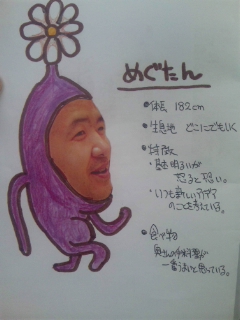 めぐたん
●体長 182cm
●生息地 どこにでもいく
●特徴
・基本明るいが
怒ると恐い。
・いつも新しいアイデア
のことを考えている。
●食べ物
奥さんの料理が
一番うまいと思っている。